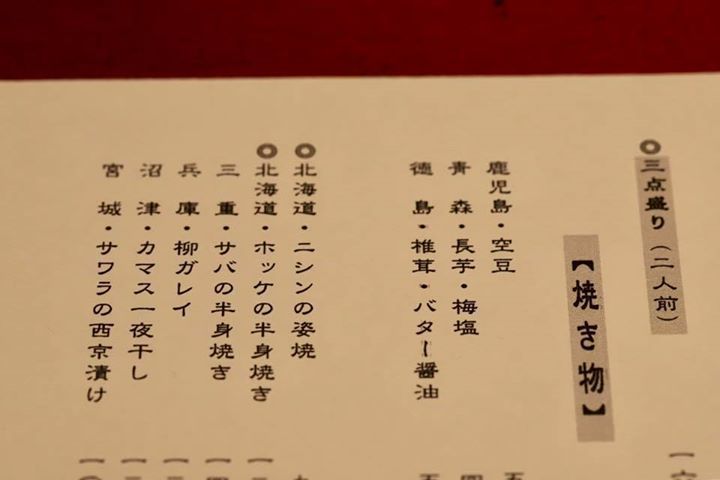 ◎三点盛り（二人前）
【焼き物】
鹿児島・空豆
青森・長芋・梅塩
徳島・椎茸・バター醤油
◎北海道・ニシンの姿焼
◎北海道・ホッケの半身焼き
三重・サバの半身焼き
兵庫・柳ガレイ
沼津・カマス一夜干し
宮城・サワラの西京漬け